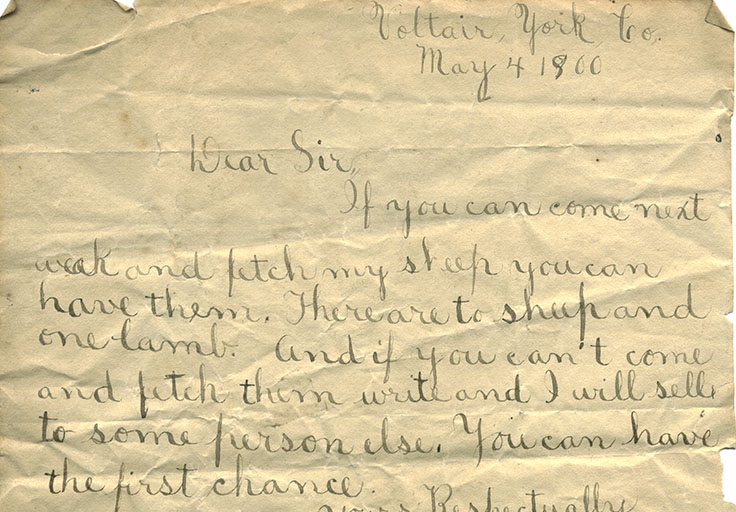 Voltair, York Co.
May 4 1900
Dear Sir,
If you can come next
week and fetch my sheep you can
have them. There are to sheep and
one lamb. And if you can't come
and fetch them write and I will sell
to some person else. You can have
the first chance.
Yours Respectually